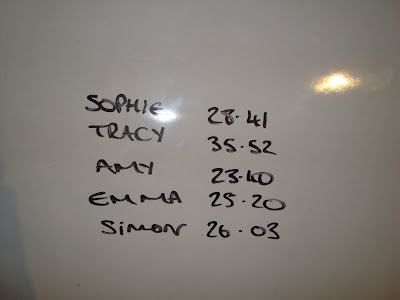 SOPHIE 28.41
TRACY 35.52
AMY 23.40
EMMA 25.20
SIMON 26.03